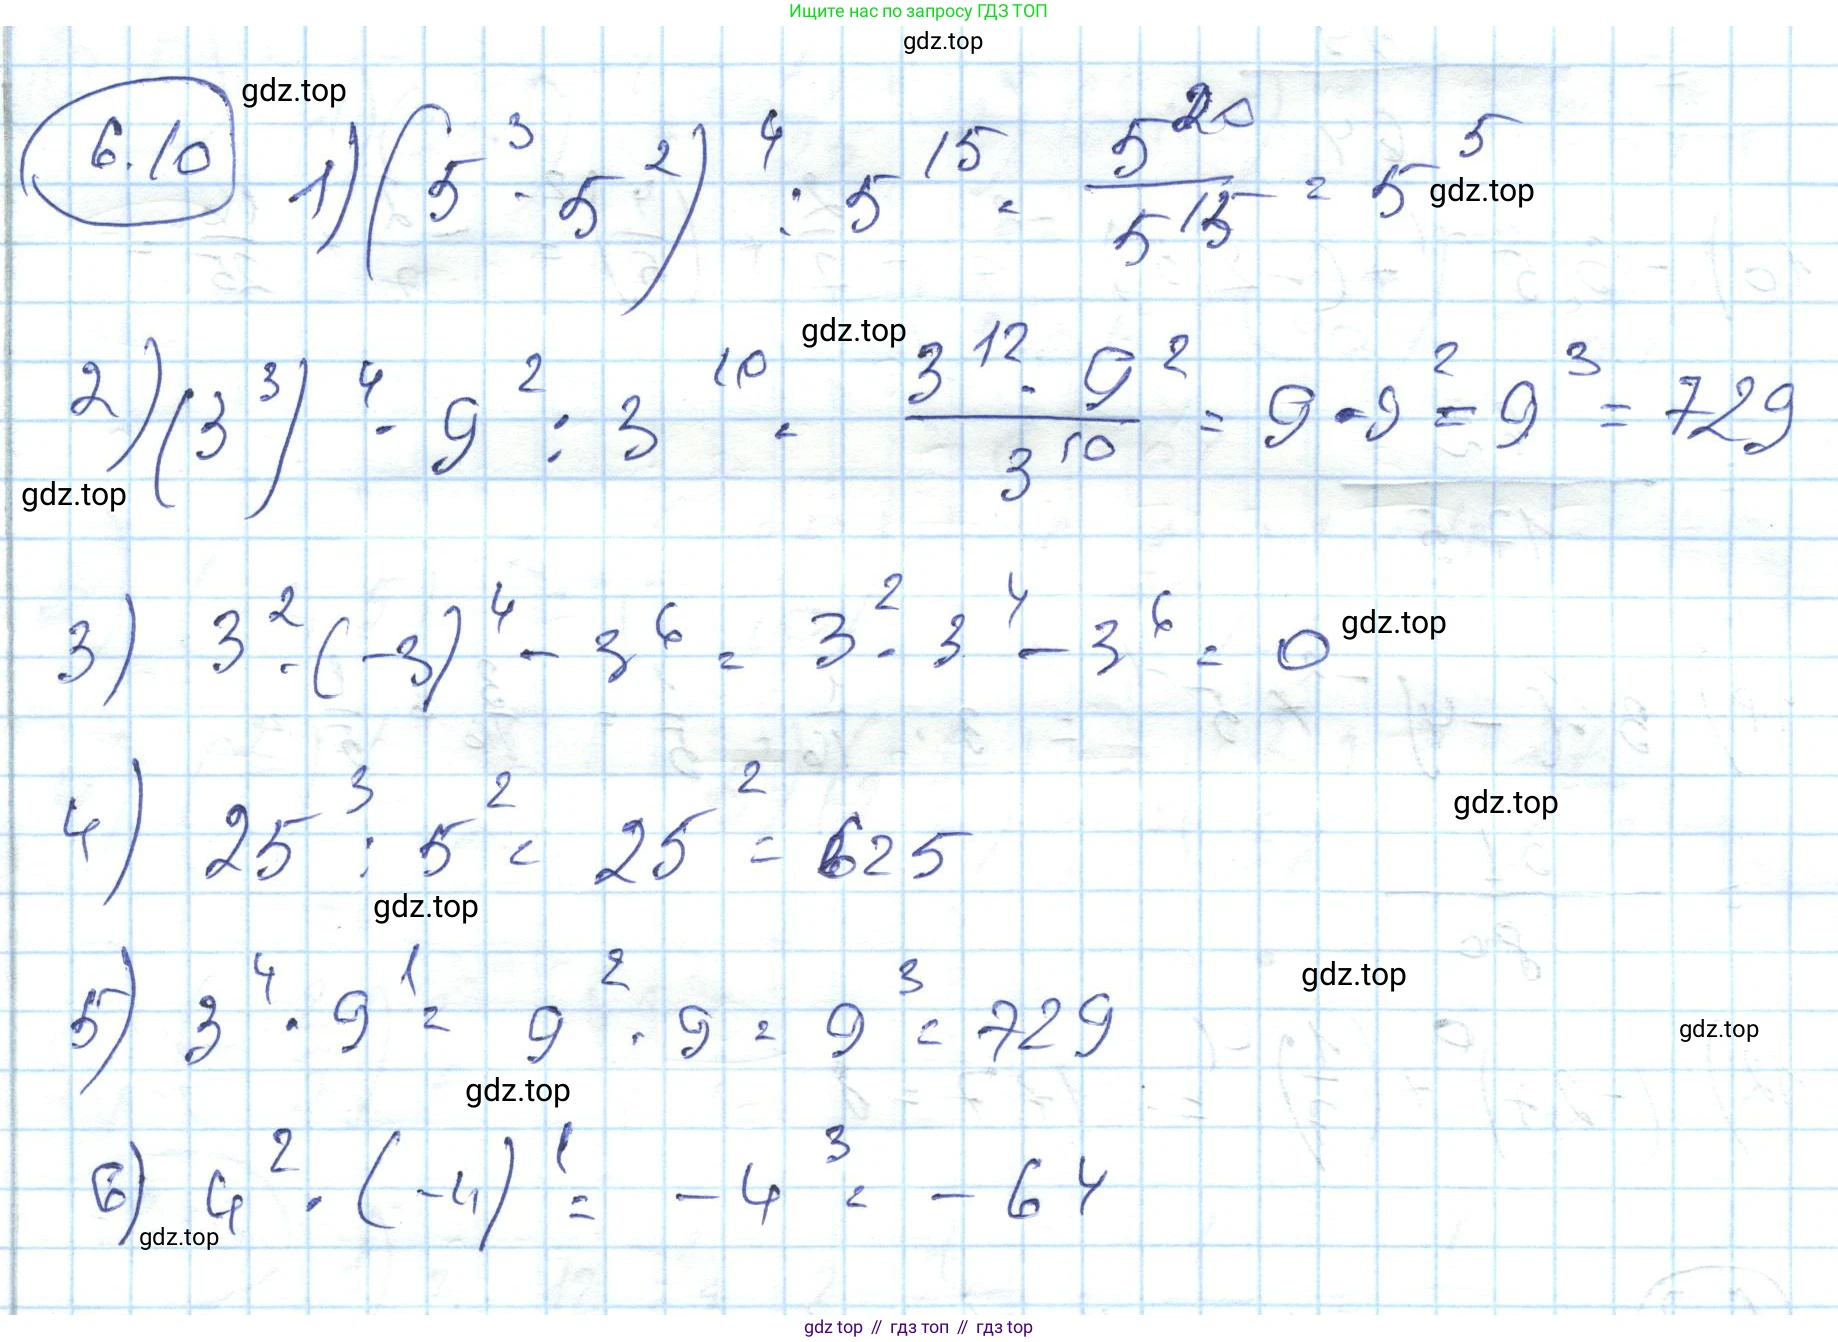 Ищите нас по запросу ГДЗ ТОП
gdz.top
gdz.top
6.10 1) (5³ · 5²)⁴ : 5¹⁵ = 5²⁰/5¹⁵ = 5⁵
gdz.top
gdz.top
2) (3³)⁴ · 9² : 3¹⁰ = 3¹² · 9²/3¹⁰ = 9 · 9² = 9³ = 729
gdz.top
3) 3² · (-3)⁴ - 3⁶ = 3² · 3⁴ - 3⁶ = 0
gdz.top
4) 25³ : 5² = 25² = 625
gdz.top
gdz.top
5) 3⁴ · 9¹ = 9² · 9 = 9³ = 729
gdz.top
gdz.top
gdz.top
6) 4² · (-4)¹ = -4³ = -64
gdz.top
gdz top // гдз топ // гдз top